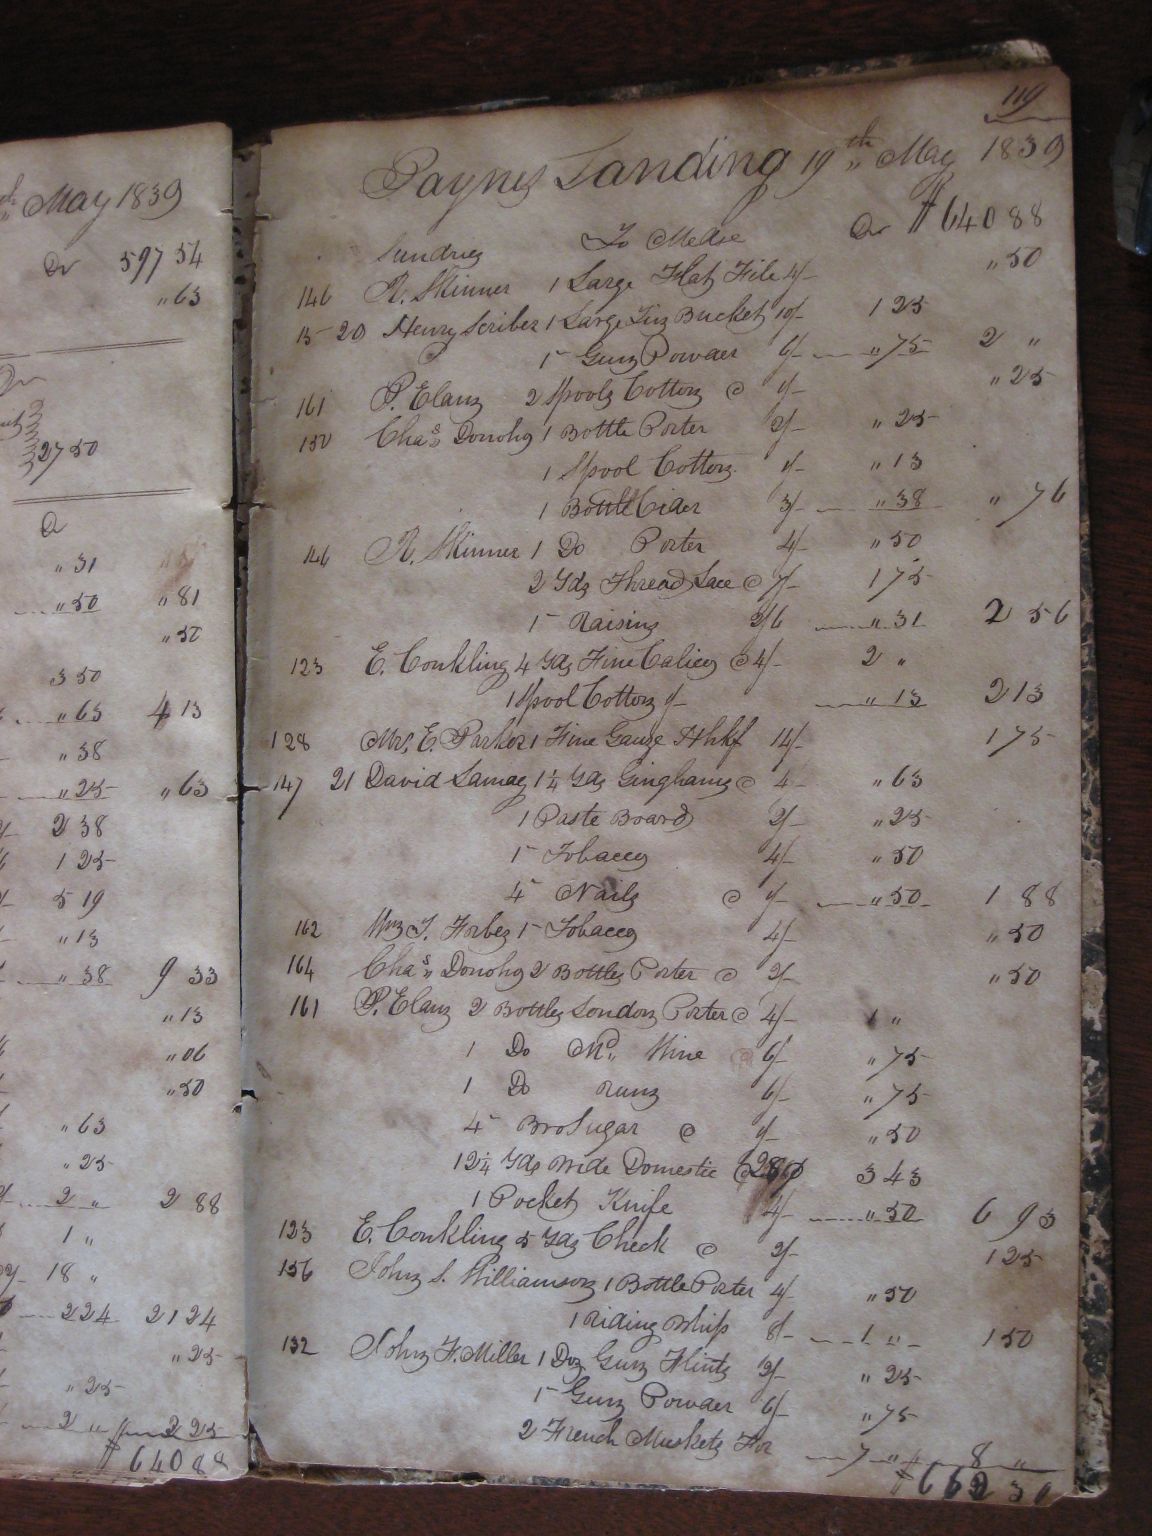 May 1839
Dr 597 54
" 63
27 50
" 31
" 50 " 81
" 50
3 50
" 63 4 13
" 38
" 25 " 63
2 38
1 25
5 19
" 13
" 38 9 33
" 13
" 06
" 50
" 63
" 25
2 " 2 88
1 "
18 "
2 24 21 24
" 25
" 25
2 " 2 25
$ 640 88
119
Paynes Landing 19th May 1839
Sundries To Mdse Dr $640 88
146 R. Skinner 1 Large Flat File 4/- " 50
15 20 Henry Scriber 1 Large Tin Bucket 10/- 1 25
1 Gun Powder 6/- " 75 2 "
161 P. Elam 2 Spools Cotton @ 1/- " 25
150 Chas Donoho 1 Bottle Porter 2/- " 25
1 Spool Cotton 1/- " 13
1 Bottle Cider 3/- " 38 " 76
146 R. Skinner 1 Do Porter 4/- " 50
2 Yds Thread Lace @ 7/- 1 75
1 Raisins 2/6 " 31 2 56
123 E. Conkling 4 Yds Fine Calico @ 4/- 2 "
1 Spool Cotton 1/- " 13 2 13
128 Mrs. E. Parker 1 Fine Gauze Hhkf 14/- 1 75
147 21 David Lamay 1¼ Yds Ginghams @ 4/- " 63
1 Paste Board 2/- " 25
1 Tobacco 4/- " 50
4 Nails @ 1/- " 50 1 88
162 Wm T. Forbes 1 Tobacco 4/- " 50
164 Chas Donoho 2 Bottles Porter @ 2/- " 50
161 P. Elam 2 Bottles London Porter @ 4/- 1 "
1 Do Md Wine 6/- " 75
1 Do Rum 6/- " 75
4 Bro Sugar @ 1/- " 50
12¼ Yds Wide Domestic @ 28¢ 3 43
1 Pocket Knife 4/- " 50 6 93
123 E. Conkling 5 Yds Check @ 2/- 1 25
156 John S. Williamson 1 Bottle Porter 4/- " 50
1 Riding Whip 8/- 1 " 1 50
132 John F. Miller 1 Doz Gun Flints 2/- " 25
1 Gun Powder 6/- " 75
2 French Muskets For 7 " 8 "
$ 662